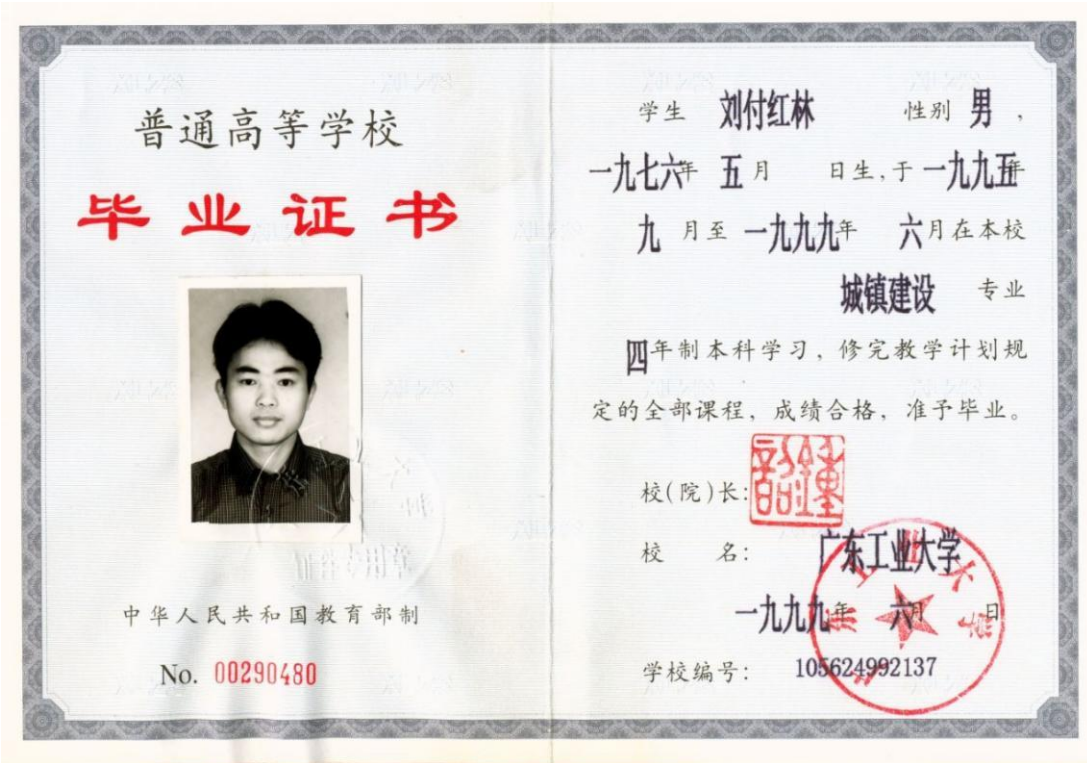 普通高等学校
毕业证书
中华人民共和国教育部制
No. 00290480
学生 刘付红林 性别 男,
一九七六年 五月 日生,于一九九五年
九月至一九九九年 六月在本校
城镇建设 专业
四年制本科学习,修完教学计划规
定的全部课程,成绩合格,准予毕业。
校(院)长:
校 名: 广东工业大学
一九九九年 六月 日
学校编号: 105624992137